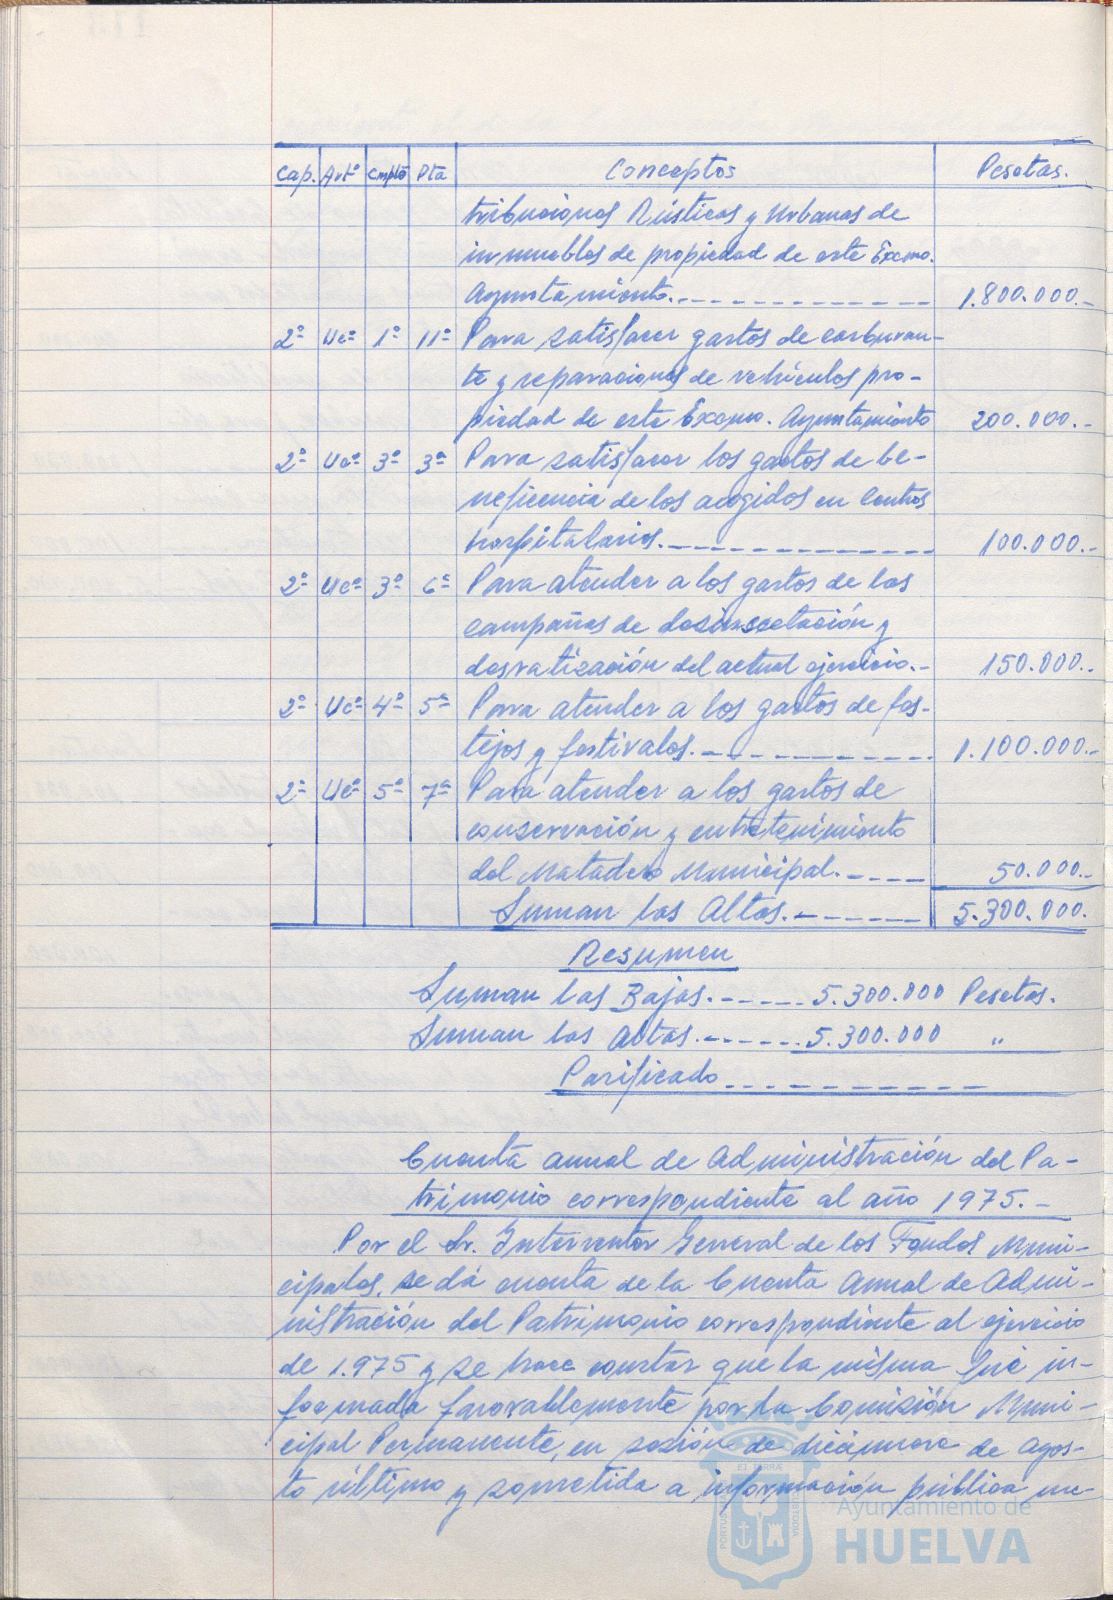 Cap. Artº Cmptº Pta Conceptos Pesetas.
tribuciones Rústicas y Urbanas de
inmuebles de propiedad de este Excmo.
Ayuntamiento. 1.800.000.-
2º Ucº 1º 11º Para satisfacer gastos de carburan-
te y reparaciones de vehículos pro-
piedad de este Excmo. Ayuntamiento 200.000.-
2º Ucº 3º 3ª Para satisfacer los gastos de be-
neficencia de los acogidos en Centros
hospitalarios. 100.000.-
2º Ucº 3º 6ª Para atender a los gastos de las
campañas de desinsectación y
desratización del actual ejercicio.- 150.000.-
2º Ucº 4º 5ª Para atender a los gastos de fes-
tejos y festivales. 1.100.000.-
2º Ucº 5º 7ª Para atender a los gastos de
conservación y entretenimiento
del Matadero Municipal. 50.000.-
Suman las Altas. 5.300.000.
Resumen
Suman las Bajas. 5.300.000 Pesetas.
Suman las Altas. 5.300.000 "
Parificado
Cuenta anual de Administración del Pa-
trimonio correspondiente al año 1975.-
Por el Sr. Interventor General de los Fondos Muni-
cipales, se dá cuenta de la Cuenta Anual de Admi-
nistración del Patrimonio correspondiente al ejercicio
de 1.975 y se hace constar que la misma fué in-
formada favorablemente por la Comisión Muni-
cipal Permanente, en sesión de diecinueve de Agos-
to último y sometida a información pública me-
Ayuntamiento de
HUELVA